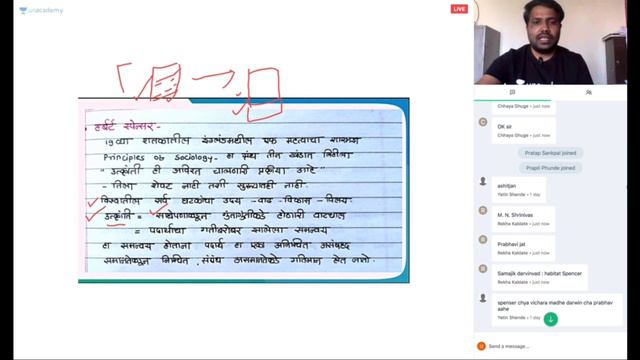 unacademy
LIVE
हर्बर्ट स्पेन्सर -
19 व्या शतकातील इंग्लंडमधील एक महत्वाचा
Principles of Sociology - हा ग्रंथ तीन खंडात लिहीला
" उत्क्रांती ही अविरत चालणारी प्रक्रीया आहे "
- तिला शेवट नाही तशी सुरुवातही नाही.
विश्वातील सर्व घटकांचा उदय - वाढ - विकास - विलय.
उत्क्रांती = साधेपणाकडून गुंतागुंतीकडे होणारी वाटचाल
= पदार्थाचा गतीबरोबर साधलेला समन्वय
हा समन्वय होताना पदार्थ हा एका अनिश्चित असंबद्ध
समानतेकडून निश्चित, संबद्ध असमानतेकडे गतिमान होत जातो.
Chhaya Ghuge • just now
C
OK sir
Chhaya Ghuge • just now
Pratap Sankpal joined
Prapti Phunde joined
ashitjan
Yetin Shende • 1 day
R
M. N. Shrinivas
Rekha Kablate • just now
R
Prabhavi jat
Rekha Kablate • just now
R
Samajik darvinvad : habitat Spencer
Rekha Kablate • just now
spenser chya vichara madhe darwin cha prabhav
aahe
Yetin Shende • 1 day
Send a message...